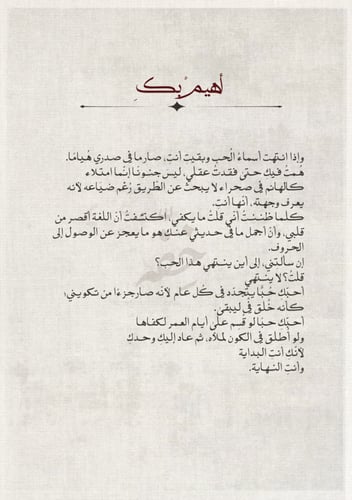 أهيمُ بِكِ
وإذا انتهت أسماءُ الحب وبقيت أنتِ، صار ما في صدري هُياما.
هُمتُ فيكِ حتى فقدتُ عقلي، ليس جنونًا إنّما امتلاء
كالهائم في صحراء لا يبحثُ عن الطريق رُغم ضياعه لأنه
يعرف وجهته، أنها أنتِ.
كلما ظننتُ أني قلتُ ما يكفي، اكتشفتُ أنّ اللغة أقصر من
قلبي، وأنّ أجمل ما في حديثي عنكِ هو ما يعجز عن الوصول إلى
الحروف.
إن سألتني، إلى أين ينتهي هذا الحب؟
قلتُ؟ لا ينتهي
أحبّكِ حُبًا يتجدّد في كُل عام لأنه صار جزءًا من تكويني،
كأنه خُلق فيّ ليبقى.
أحبّكِ حبًا لو قُسم على أيام العمر لكفاها
ولو أُطلق في الكون لملأه، ثم عاد إليك وحدكِ
لأنك أنت البداية
وأنتِ النهاية.